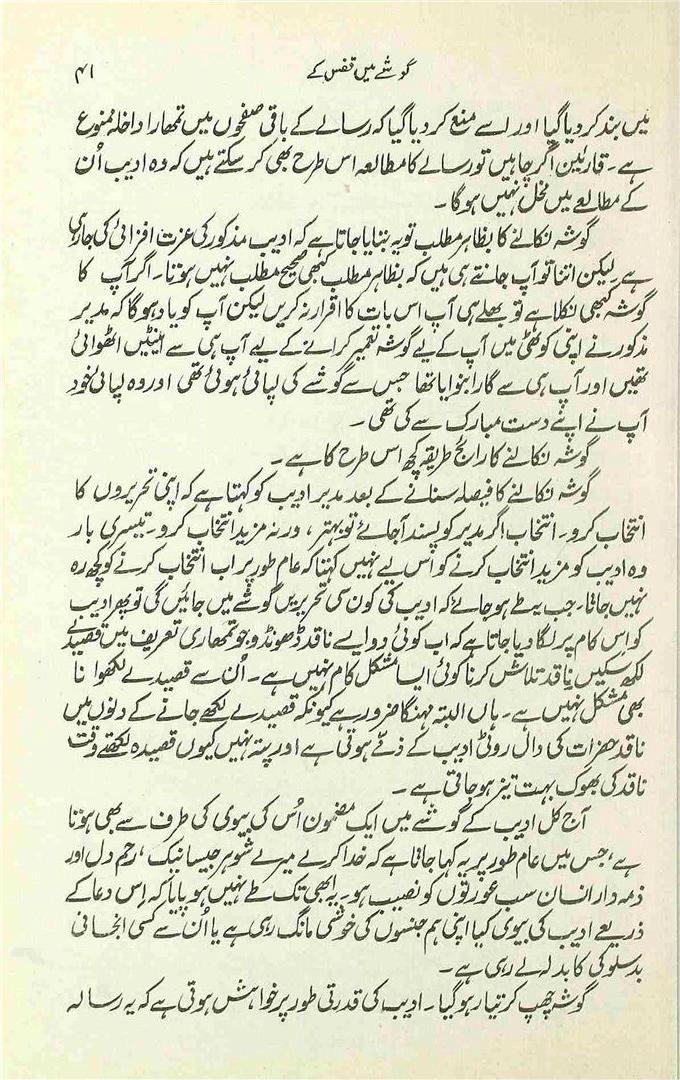 گوشے میں قفس کے ۴۱
میں بند کر دیا گیا اور اسے منع کر دیا گیا کہ رسالے کے باقی صفحوں میں تمھارا داخلہ ممنوع
ہے۔ قارئین اگر چاہیں تو رسالے کا مطالعہ اس طرح بھی کر سکتے ہیں کہ وہ ادیب اُن
کے مطالعے میں مخل نہیں ہوگا۔
گوشہ نکالنے کا بظاہر مطلب تو یہ بتایا جاتا ہے کہ ادیب مذکور کی عزت افزائی کی جا رہی
ہے۔ لیکن اتنا تو آپ جانتے ہی ہیں کہ بظاہر مطلب کبھی صحیح مطلب نہیں ہوتا۔ اگر آپ کا
گوشہ کبھی نکلا ہے تو بھلے ہی آپ اس بات کا اقرار نہ کریں لیکن آپ کو یاد ہوگا کہ مدیر
مذکور نے اپنی کوٹھی میں آپ کے لیے گوشہ تعمیر کرانے کے لیے آپ ہی سے اینٹیں اٹھوائی
تھیں اور آپ ہی سے گارا بنوایا تھا جس سے گوشے کی لپائی ہوئی تھی اور وہ لپائی خود
آپ نے اپنے دست مبارک سے کی تھی۔
گوشہ نکالنے کا رائج طریقہ کچھ اس طرح کا ہے۔
گوشہ نکالنے کا فیصلہ سنانے کے بعد مدیر ادیب کو کہتا ہے کہ اپنی تحریروں کا
انتخاب کرو۔ انتخاب اگر مدیر کو پسند آجائے تو بہتر، ورنہ مزید انتخاب کرو۔ تیسری بار
وہ ادیب کو مزید انتخاب کرنے کو اس لیے نہیں کہتا کہ عام طور پر اب انتخاب کرنے کو کچھ رہ
نہیں جاتا۔ جب یہ طے ہو جائے کہ ادیب کی کون سی تحریریں گوشے میں جائیں گی تو پھر ادیب
کو اس کام پر لگا دیا جاتا ہے کہ اب کوئی دو ایسے ناقد ڈھونڈو جو تمھاری تعریف میں قصیدے
لکھ سکیں۔ ناقد تلاش کرنا کوئی ایسا مشکل کام نہیں ہے۔ اُن سے قصیدے لکھوانا
بھی مشکل نہیں ہے۔ ہاں البتہ مہنگا ضرور ہے کیونکہ قصیدے لکھے جانے کے دنوں میں
ناقد حضرات کی دال روٹی ادیب کے ذمّے ہوتی ہے اور پتہ نہیں کیوں قصیدہ لکھتے وقت
ناقد کی بھوک بہت تیز ہو جاتی ہے۔
آج کل ادیب کے گوشے میں ایک مضمون اُس کی بیوی کی طرف سے بھی ہوتا
ہے، جس میں عام طور پر یہ کہا جاتا ہے کہ خدا کرے میرے شوہر جیسا نیک، رحم دل اور
ذمہ دار انسان سب عورتوں کو نصیب ہو۔ یہ ابھی تک طے نہیں ہو پایا کہ اِس دعا کے
ذریعے ادیب کی بیوی کیا اپنی ہم جنسوں کی خوشی مانگ رہی ہے یا اُن سے کسی انجانی
بدسلوکی کا بدلہ لے رہی ہے۔
گوشہ چھپ کر تیار ہو گیا۔ ادیب کی قدرتی طور پر خواہش ہوتی ہے کہ یہ رسالہ